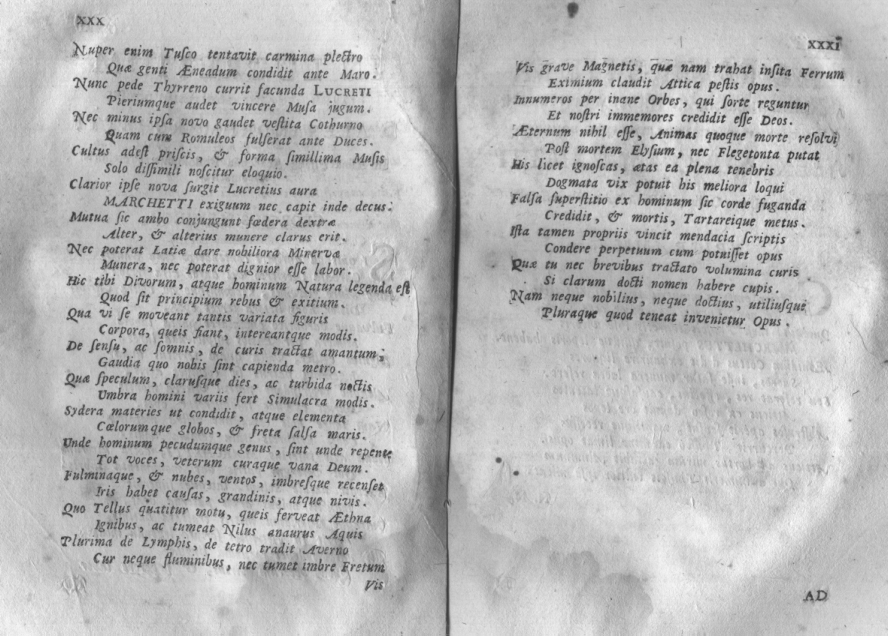 XXX
Nuper enim Tuſco tentavit carmina plectro
Quæ genti Æneadum condidit ante Maro.
Nunc pede Thyrreno currit facunda LUCRETI
Pieriumque audet vincere Muſa jugum.
Nec minus ipſa novo gaudet veſtita Cothurno
Quam cum Romuleos fulſerat ante Duces.
Cultus adeſt priſcis, & forma ſimillima Muſis
Solo diſſimili noſcitur eloquio.
Clarior ipſe nova ſurgit Lucretius aura
MARCHETTI exiguum nec capit inde decus.
Mutua ſic ambo conjungunt fœdera dextræ
Alter, & alterius munere clarus erit.
Nec poterat Latiæ dare nobiliora Minervæ
Munera, nec poterat dignior eſſe labor.
Hic tibi Divorum, atque hominum Natura legenda eſt
Quod ſit principium rebus & exitium.
Qua vi ſe moveant tantis variata figuris
Corpora, queis fiant, intereantque modis.
De ſenſu, ac ſomnis, de curis tractat amantum;
Gaudia quo nobis ſint capienda metro.
Quæ ſpeculum, claruſque dies, ac turbida noctis
Umbra homini variis fert Simulacra modis.
Sydera materies ut condidit, atque elementa
Cœlorumque globos, & freta ſalſa maris.
Unde hominum pecudumque genus, ſint unde repente
Tot voces, veterum curaque vana Deum.
Fulminaque, & nubes, ventos, imbreſque recenſet
Iris habet cauſas, grandinis, atque nivis.
Quo Tellus quatitur motu, queis ferveat Æthna
Ignibus, ac tumeat Nilus anaurus Aquis
Plurima de Lymphis, de tetro tradit Averno
Cur neque fluminibus, nec tumet imbre Fretum
Vis
XXXI
Vis grave Magnetis, quæ nam trahat inſita Ferrum
Eximium claudit Attica peſtis opus.
Innumeros per inane Orbes, qui ſorte reguntur
Et noſtri immemores credidit eſſe Deos.
Æternum nihil eſſe, Animas quoque morte reſolvi
Poſt mortem Elyſium, nec Flegetonta putat
His licet ignoſcas, ætas ea plena tenebris
Dogmata vix potuit his meliora loqui
Falſa ſuperſtitio ex hominum ſic corde fuganda
Credidit, & mortis, Tartareique metus.
Iſta tamen propriis vincit mendacia ſcriptis
Condere perpetuum cum potuiſſet opus
Quæ tu nec brevibus tractato volumina curis
Si clarum docti nomen habere cupis.
Nam neque nobilius, neque doctius, utiliuſque
Pluraque quod teneat invenietur Opus.
AD